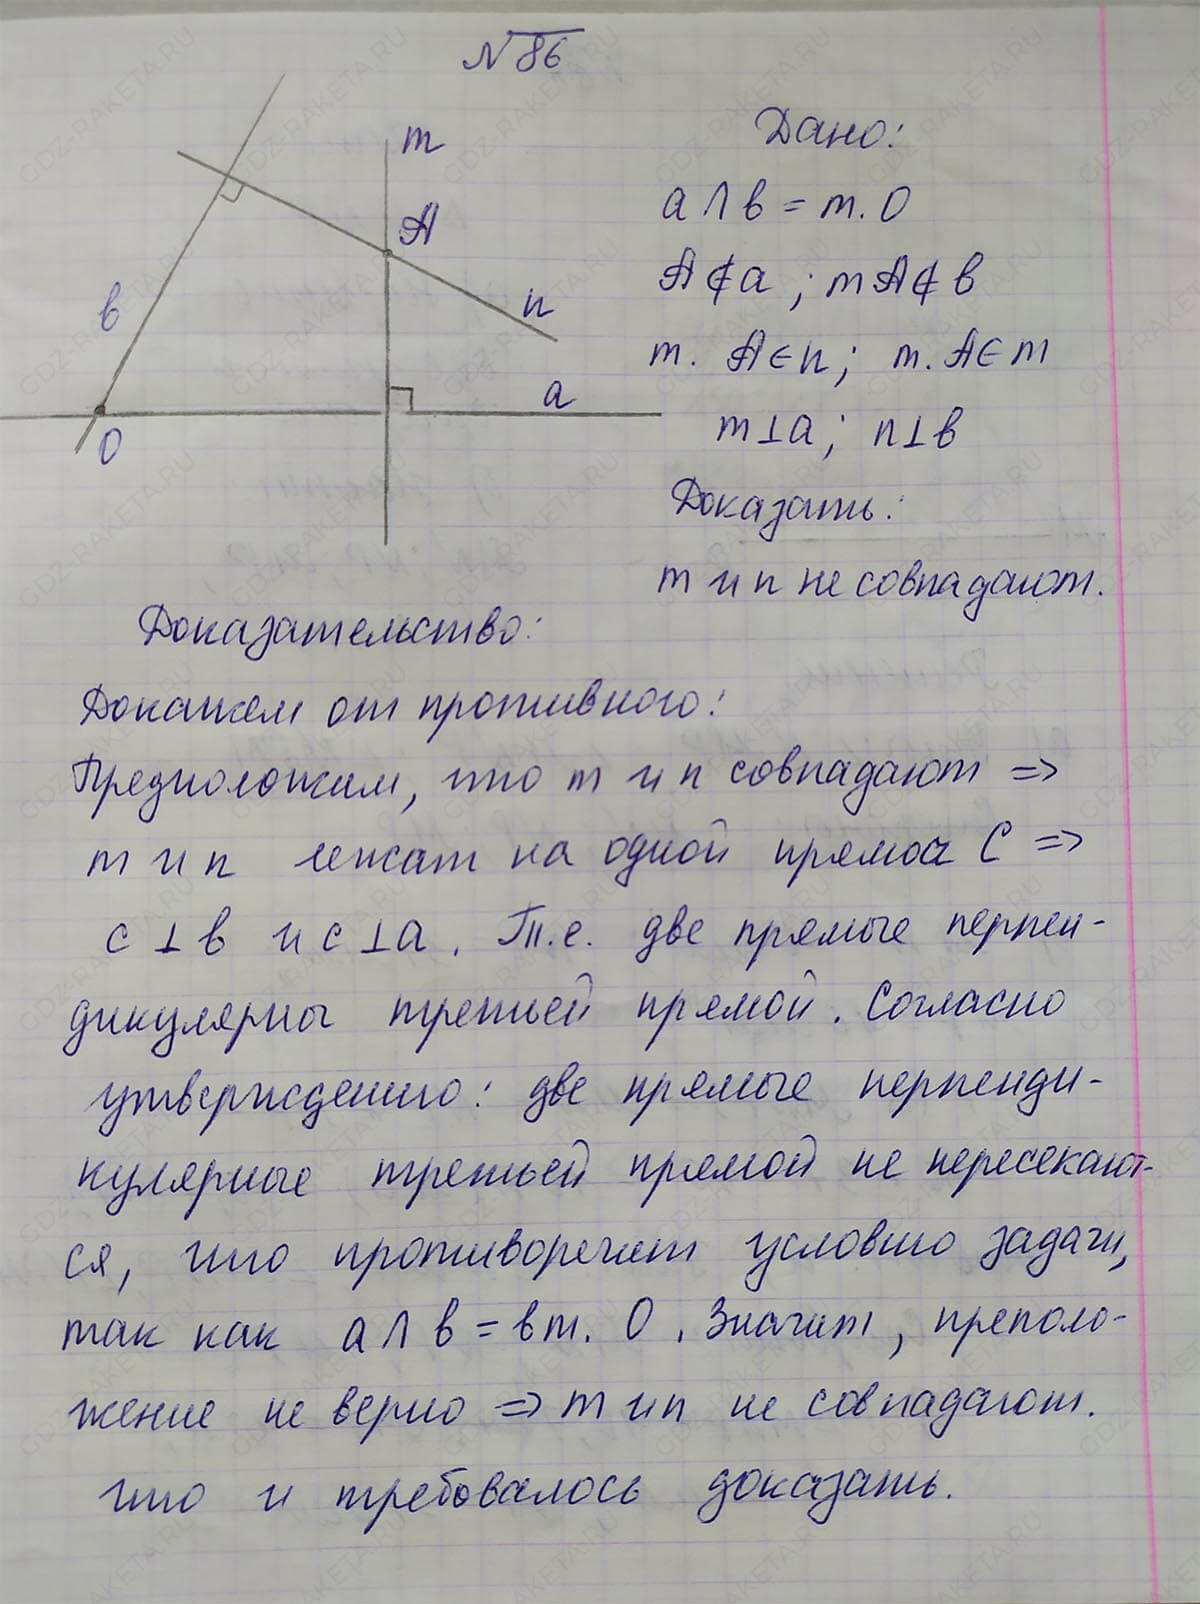 № 86
m
Дано:
a ∩ b = т. O
A
A ∉ a ; т A ∉ b
n
b
т. A ∈ n; т. A ∈ m
a
m ⊥ a; n ⊥ b
O
Доказать:
m и n не совпадают.
Доказательство:
Докажем от противного:
Предположим, что m и n совпадают =>
m и n лежат на одной прямоа C =>
c ⊥ b и c ⊥ a. Т.е. две прямые перпен-
дикулярны третьей прямой. Согласно
утверждению: две прямые перпенди-
кулярные третьей прямой не пересекают-
ся, что противоречит условию задачи,
так как a ∩ b = в т. O. Значит, преполо-
жение не верно => m и n не совпадают.
что и требовалось доказать.
GDZ-RAKETA.RU